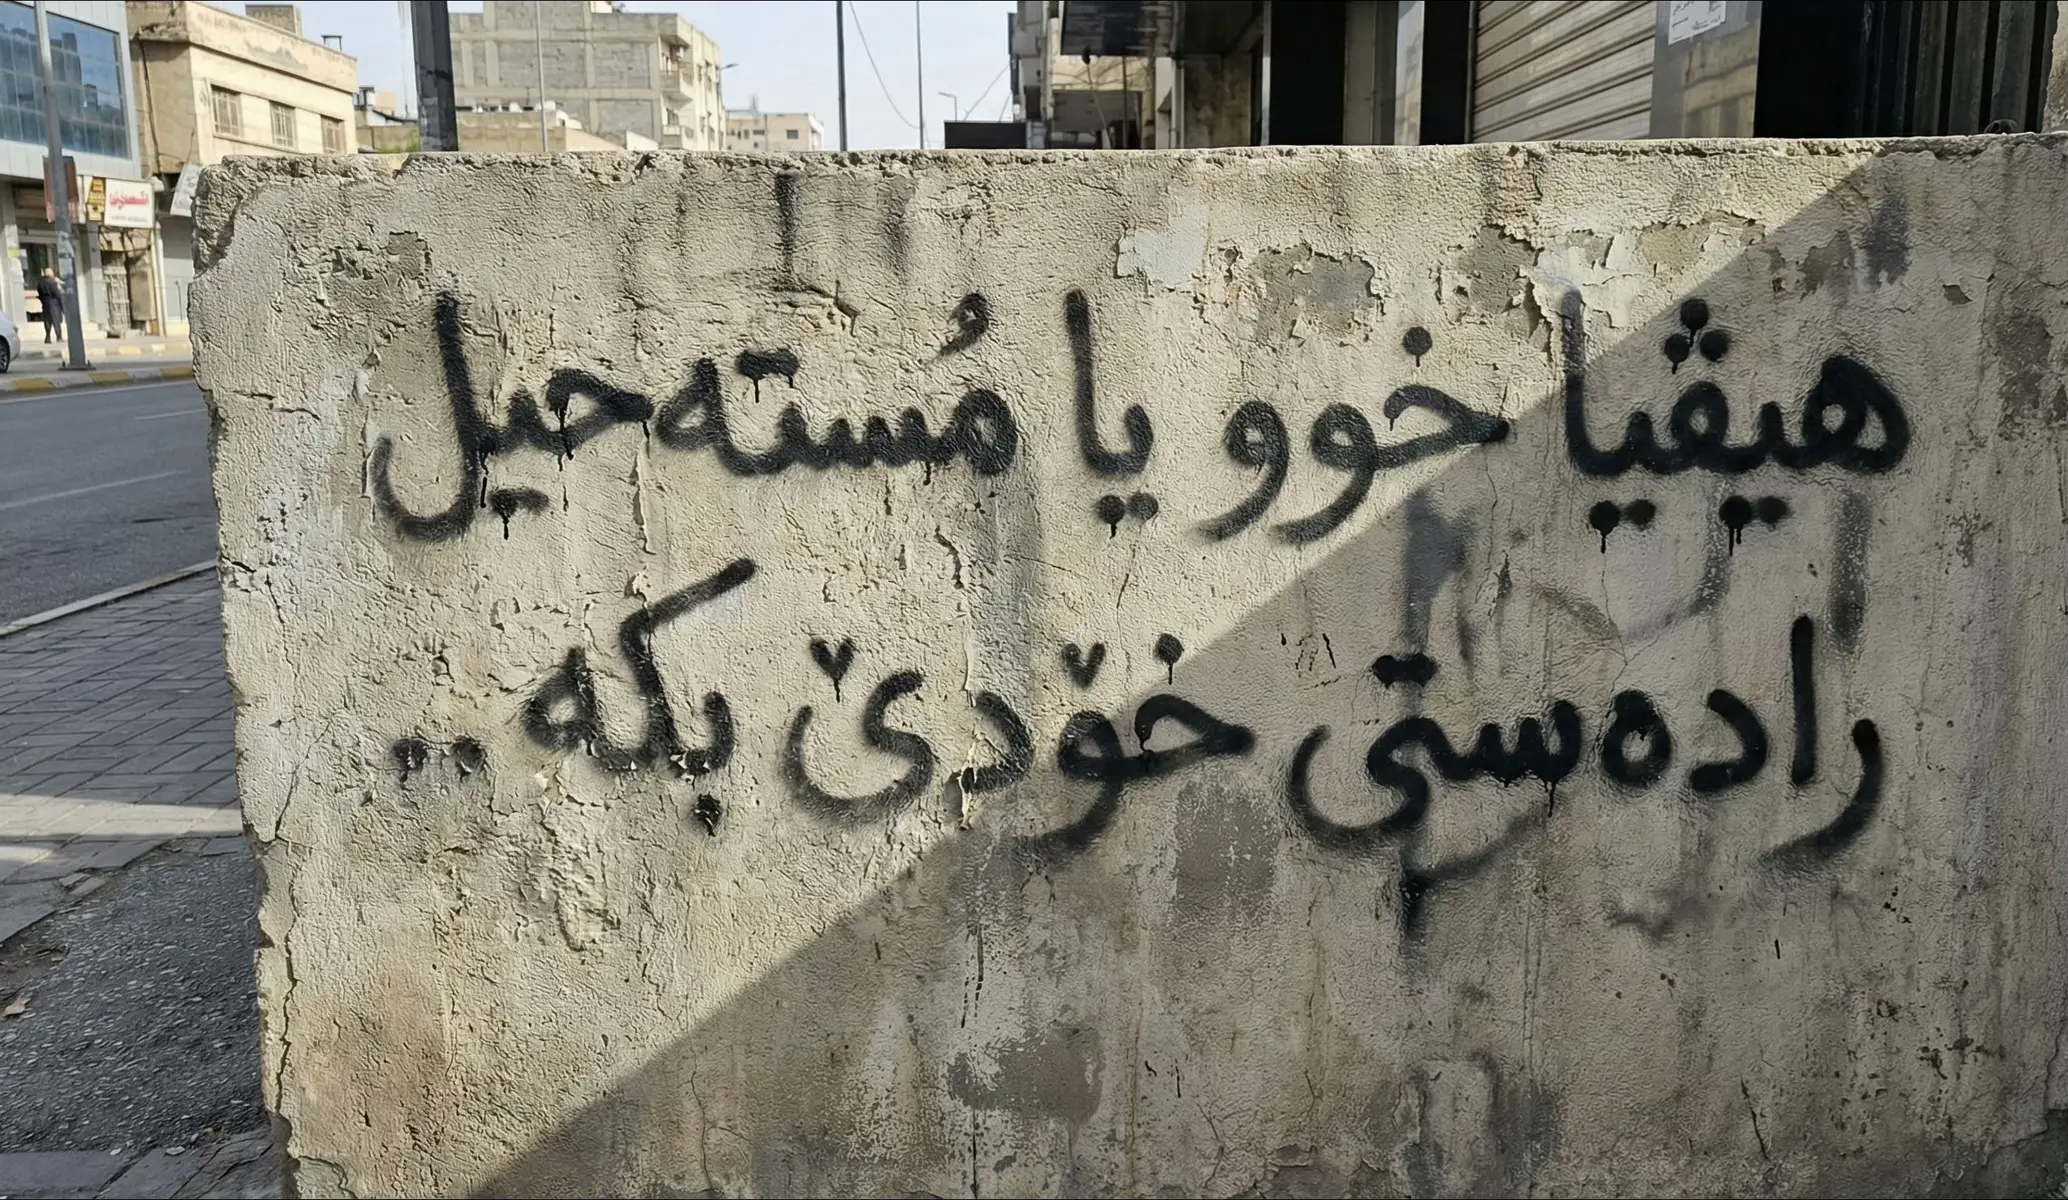 هیڤیا خوو یا مُستەحیل
رادەستی خۆدێ بکە..